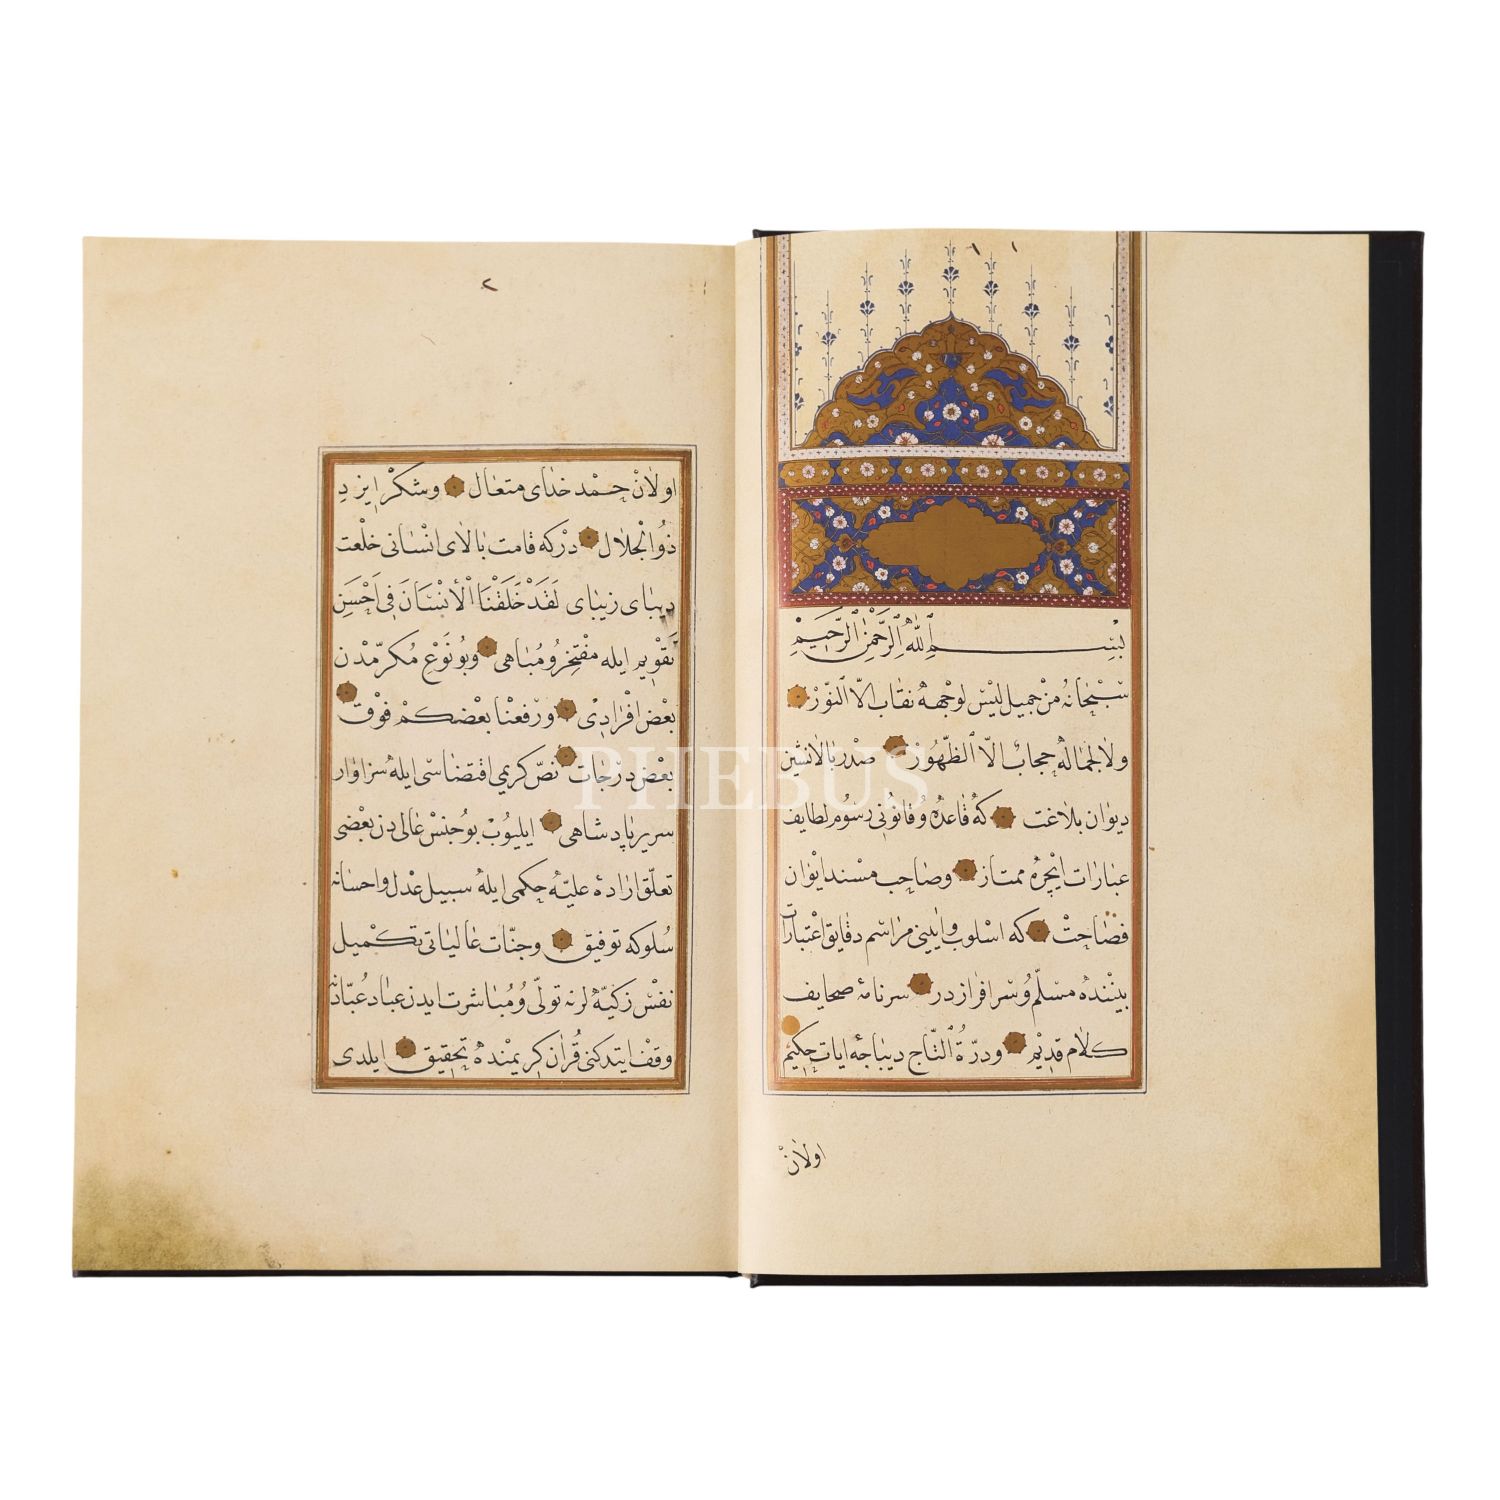 ١
بسم الله الرحمن الرحيم
سبحانه من جميل ليس لوجهه نقاب الا النور
ولا لجماله حجاب الا الظهور صدر بالانشين
ديوان بلاغت كه قاعده وقانون رسوم لطايف
عبارات انجره ممتاز وصاحب مسند ايوان
فصاحت كه اسلوب وايين مراسم دقايق اعتبارات
بيننده مسلم وسرافراز در سرنامه صحايف
كلام قديم ودرة التاج ديباجه ايات حكيم
اولان
٢
اولان حمد خداى متعال وشكر ايزد
ذو الجلال دركه قامت بالاى انسانى خلعت
ديباى زيباى لقد خلقنا الأنسان في احسن
تقويم ايله مفتخر ومباهى وبو نوع مكرمدن
بعض افرادى ورفعنا بعضكم فوق
بعض درجات نص كريمي اقتضاسى ايله سزاوار
سرير پادشاهى ايليوب بو جنس عالى دن بعضى
تعلق اراده عليه حكمى ايله سبيل عدل واحسانه
سلوكه توفيق وجنات عالياتى تكميل
نفس زكيه لرنه تولى ومباشرت ايدن عباد عباد
وقف ايتدكنى قران كريمنده تحقيق ايلدى
PHEBUS